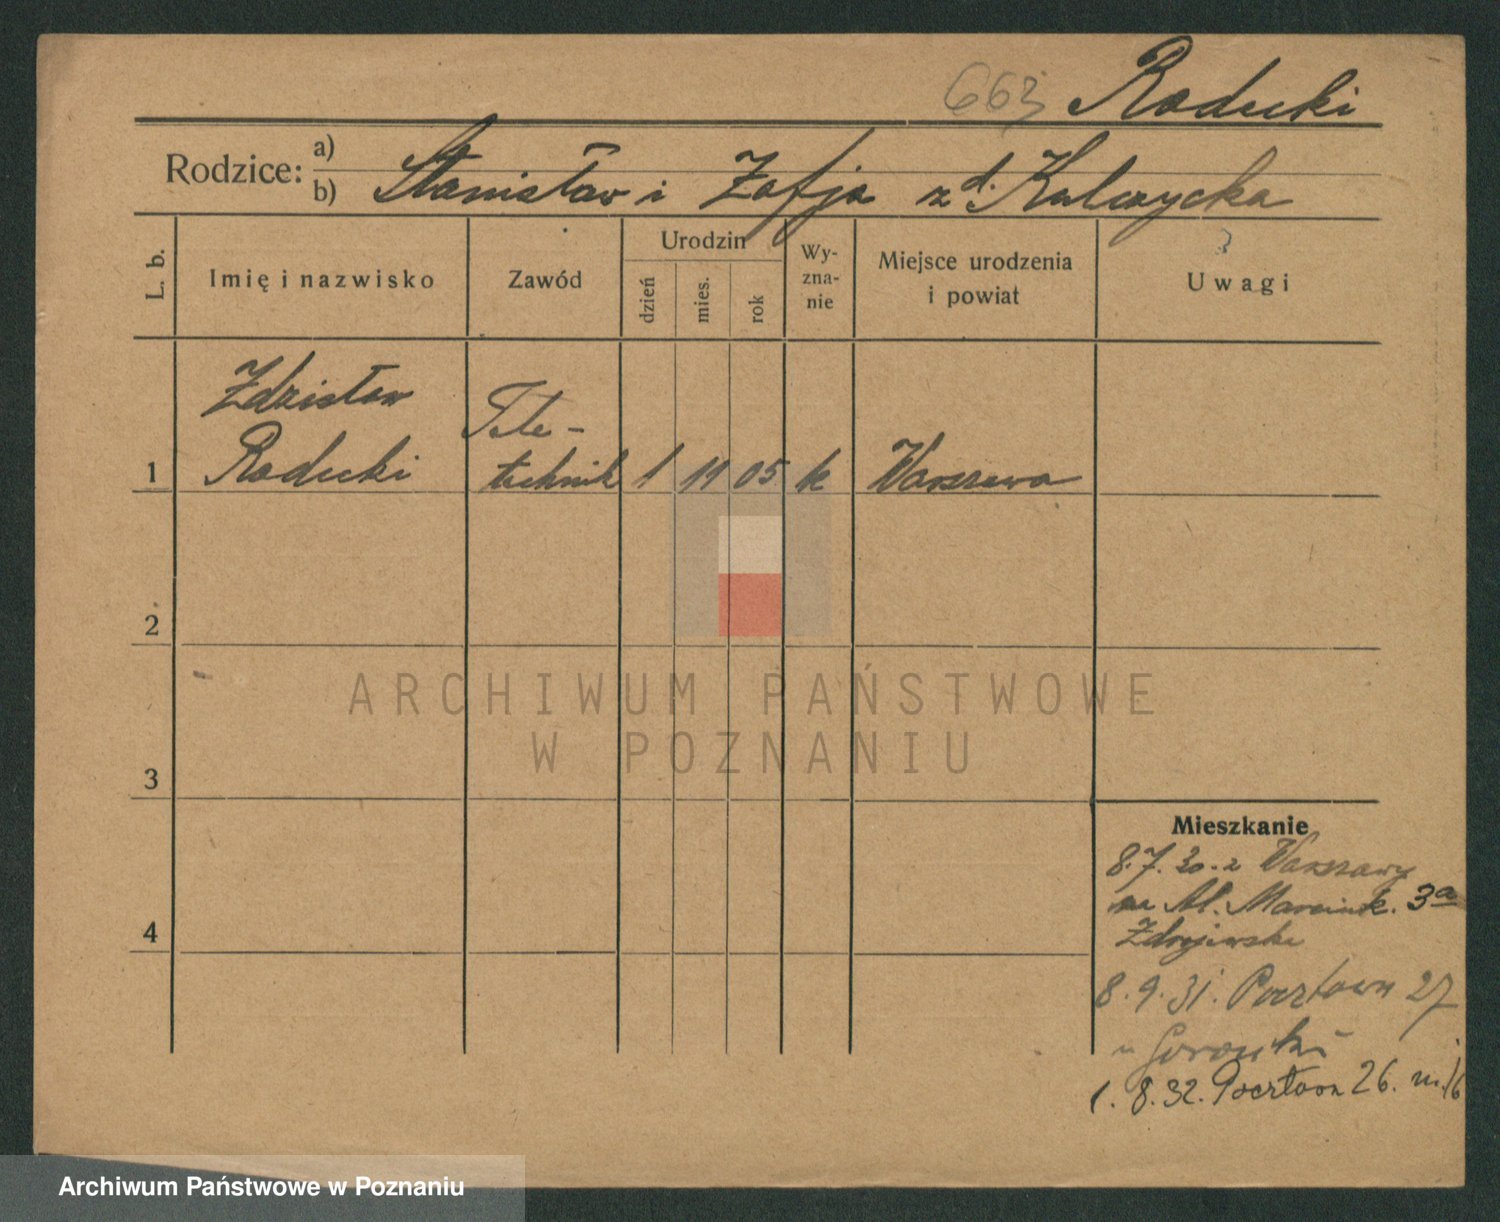 663 Radecki
Rodzice: a)
b) Stanisław i Zofja z d. Kulczycka
L. b.
Imię i nazwisko
Zawód
Urodzin
dzień
mies.
rok
Wy-
zna-
nie
Miejsce urodzenia
i powiat
Uwagi
Zdzisław
Radecki
Tele-
technik
1 1 11 05 k Warszawa
2
3
4
ARCHIWUM PAŃSTWOWE
W POZNANIU
Mieszkanie
8.7.30. z Warszawy
na Al. Marcink. 3a
Zdrojewska
8.9.31. Pocztowa 27
u
1.8.32. Pocztowa 26. m. 16
Archiwum Państwowe w Poznaniu